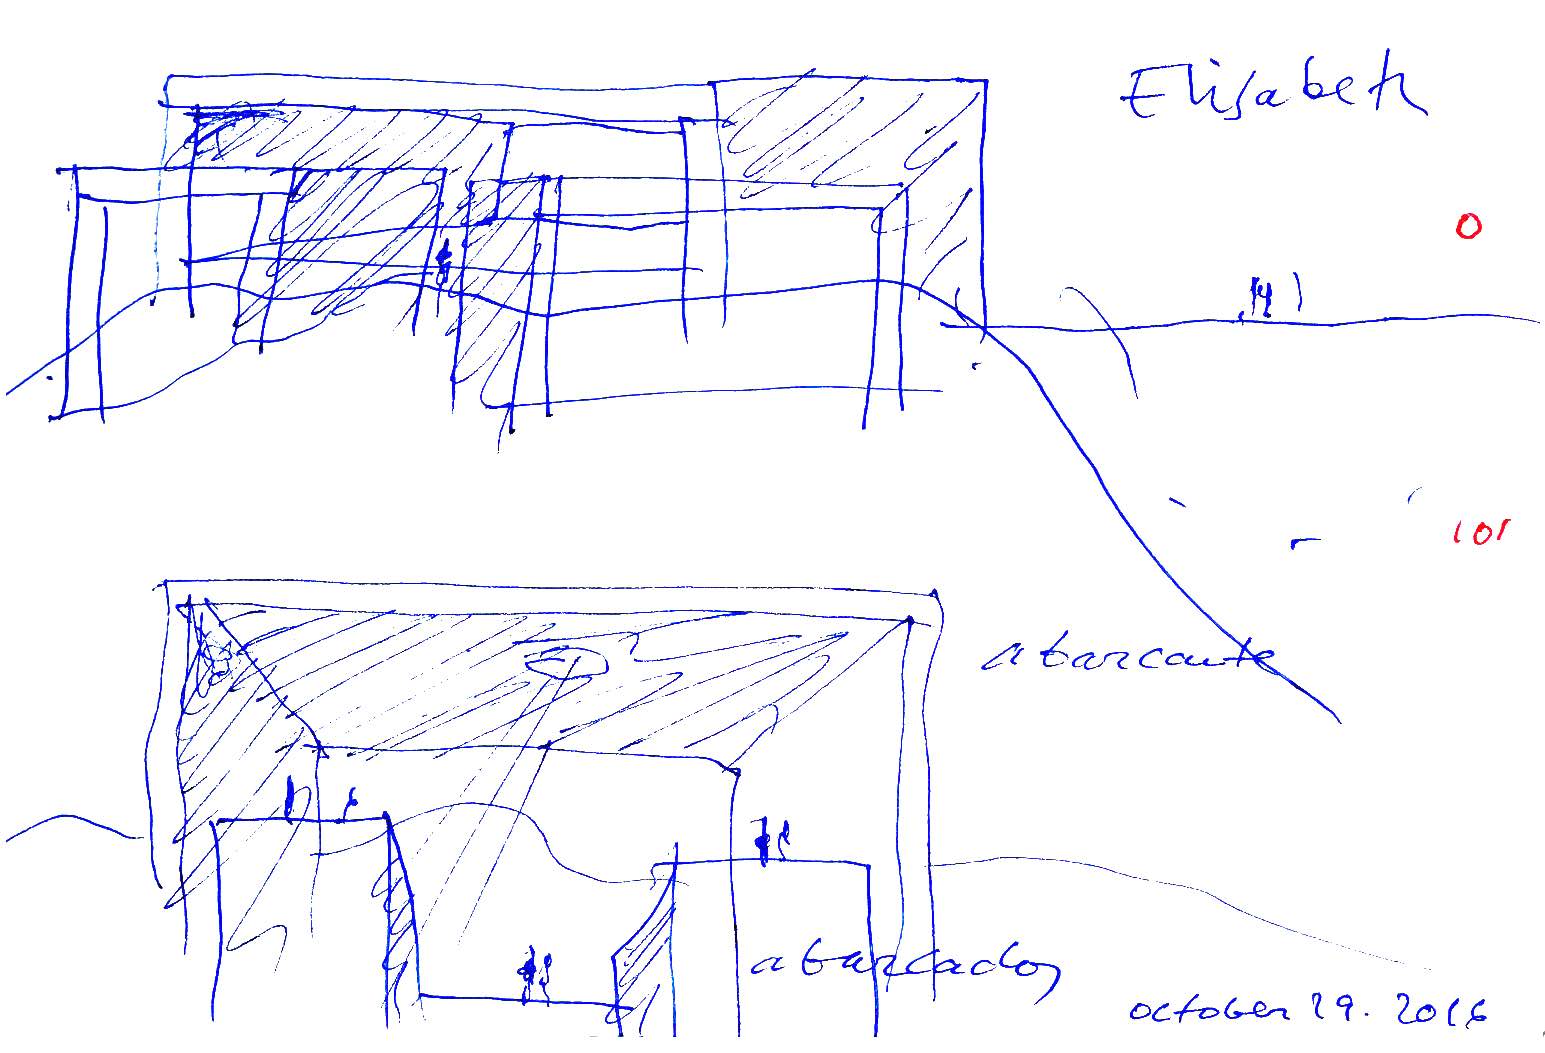 Elisabeth
0
101
abarcante
abarcados
october 29. 2016